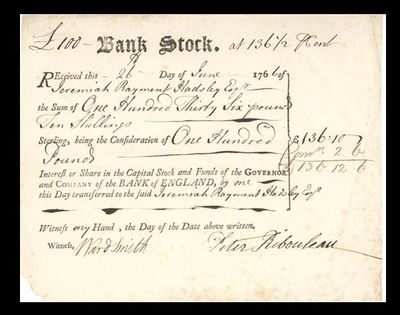 £100 - Bank Stock. at 136 1/2 ℔ Cent
REceived this 26th Day of June 1766 of
Jeremiah Rayment Hadsley Esqr
the Sum of One Hundred Thirty Six pound
Ten Shillings
Sterling, being the Consideration of One Hundred £136.10
Pounds 2 6
Interest or Share in the Capital Stock and Funds of the GOVERNOR £136 12 6
and COMPANY of the BANK of ENGLAND, by me
this Day transferred to the said Jeremiah Rayment Hadsley Esqr
Witness my Hand, the Day of the Date above written.
Witness, Ward Smith Peter Ribouleau